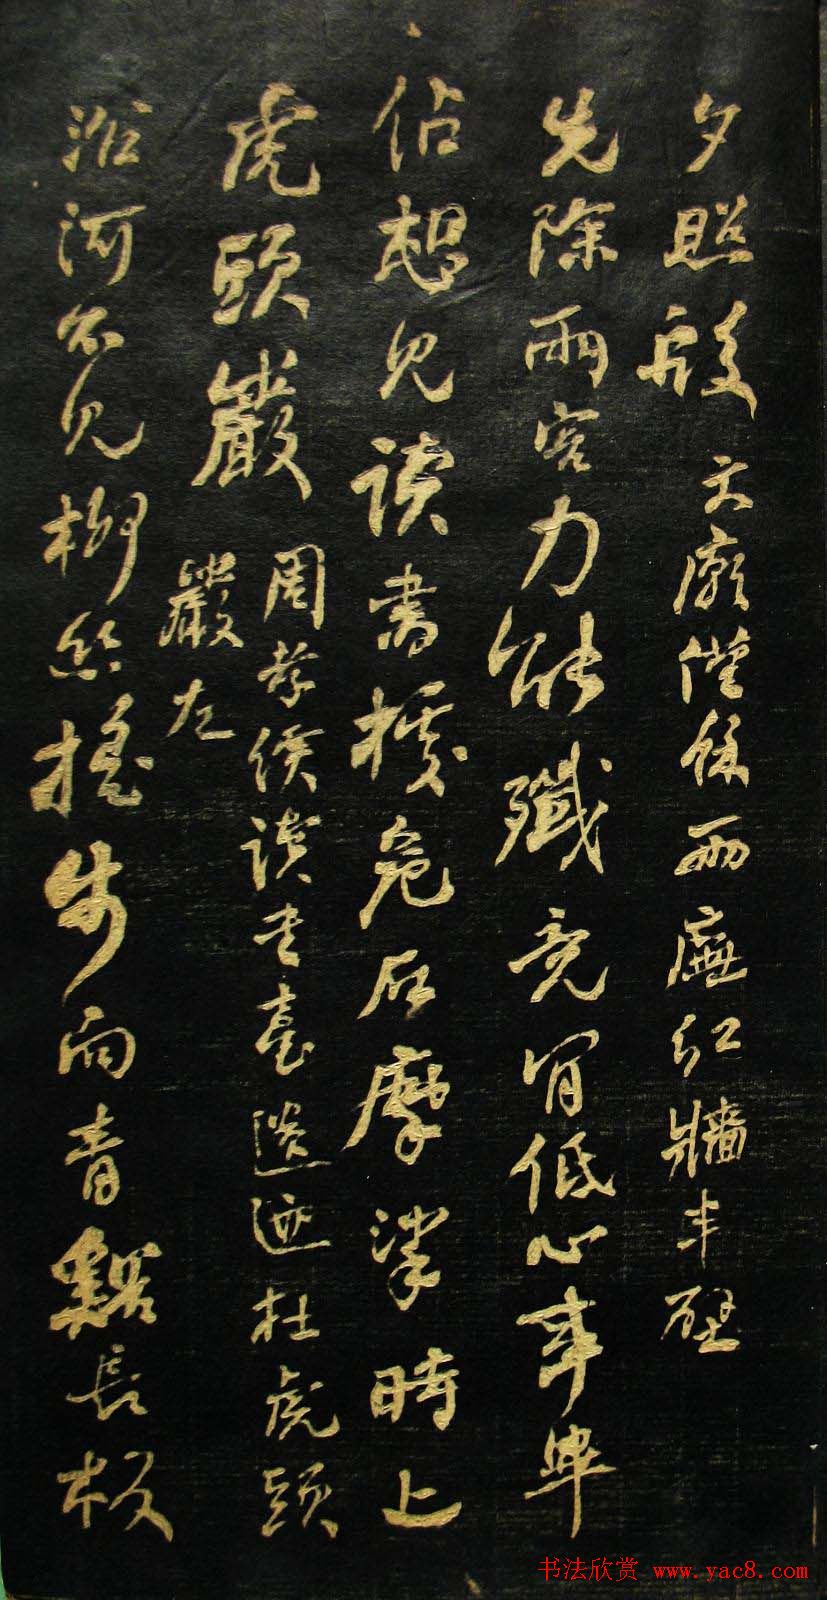 夕照殷 文廟僅餘兩廡紅牆半壁
先除兩害力能殲竟肯低心事畢
佔想見讀書危石摩挲時上
虎頭巖 周孝侯讀書臺遺迹在虎頭
巖左
沿河不見柳絲搖步向青谿長板
书法欣赏 www.yac8.com